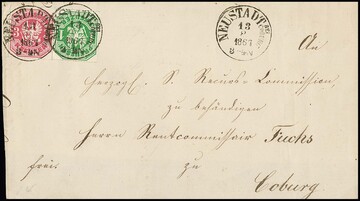 NEUSTADT
13
1867
NEUSTADT
13
1867
An
Herzogl. S. Recurs-Commission,
zu behändigen
Herrn Rentcommissair Fuchs
frei. zu
Coburg.